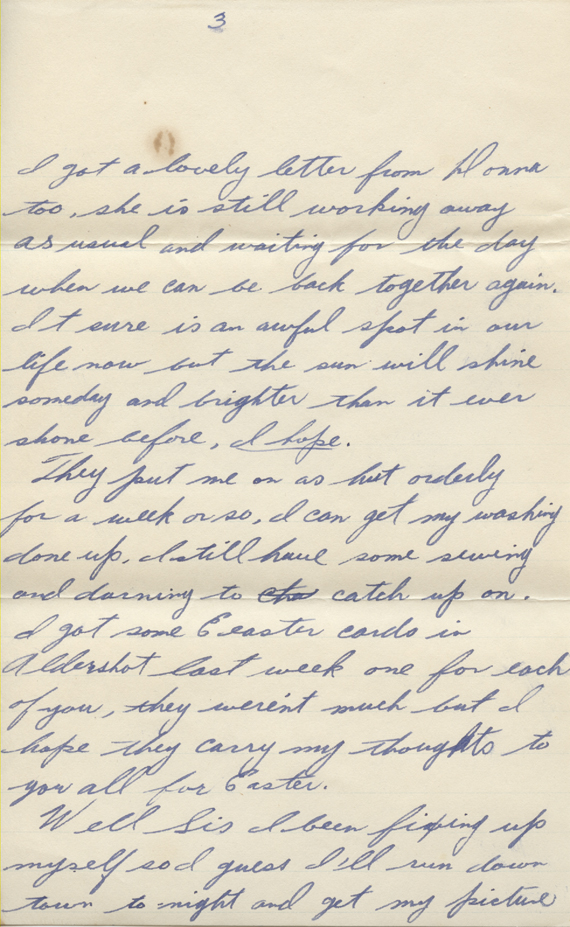 3
I got a lovely letter from Donna
too, she is still working away
as usual and waiting for the day
when we can be back together again.
It sure is an awful spot in our
life now but the sun will shine
someday and brighter than it ever
shone before, I hope.
They put me on as hut orderly
for a week or so, I can get my washing
done up. I still have some sewing
and darning to cha catch up on.
I got some Eeaster cards in
Aldershot last week one for each
of you, they weren't much but I
hope they carry my thoughts to
you all for Easter.
Well Sis I been fixing up
myself so I guess I'll run down
town to-night and get my picture